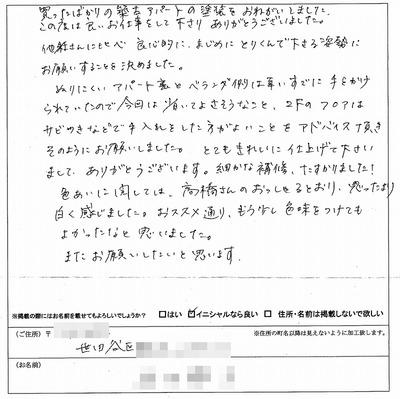 買ったばかりの築古アパートの塗装をおねがいしました。
この度は良いお仕事をして下さり ありがとうございました。
他社さんに比べ 良心的に、まじめに とりくんで下さる姿勢に
お願いすることを決めました。
ぬりにくい アパート裏と ベランダ側は 幸いすでに 手をかけ
られていたので 今回は 省いてよさそうなこと、2Fの フロアは
サビめきなどで手入れをした方がよいことを アドバイス頂き
そのようにお願いしました。 とてもきれいに 仕上げて下さい
まして ありがとうございます。細かな補修、たすかりました！
色あいに関しては、高橋さんのおっしゃるとおり、思ったより
白く感じました。おススメ通り、もう少し 色味をつけても
よかったなと 思いました。
またお願いしたいと思います。
※掲載の際にはお名前を載せてもよろしいでしょうか？ □はい ☑イニシャルなら良い □ 住所・名前は掲載しないで欲しい
（ご住所）〒 ※住所の町名以降は見えないように加工致します。
世田谷区
（お名前）